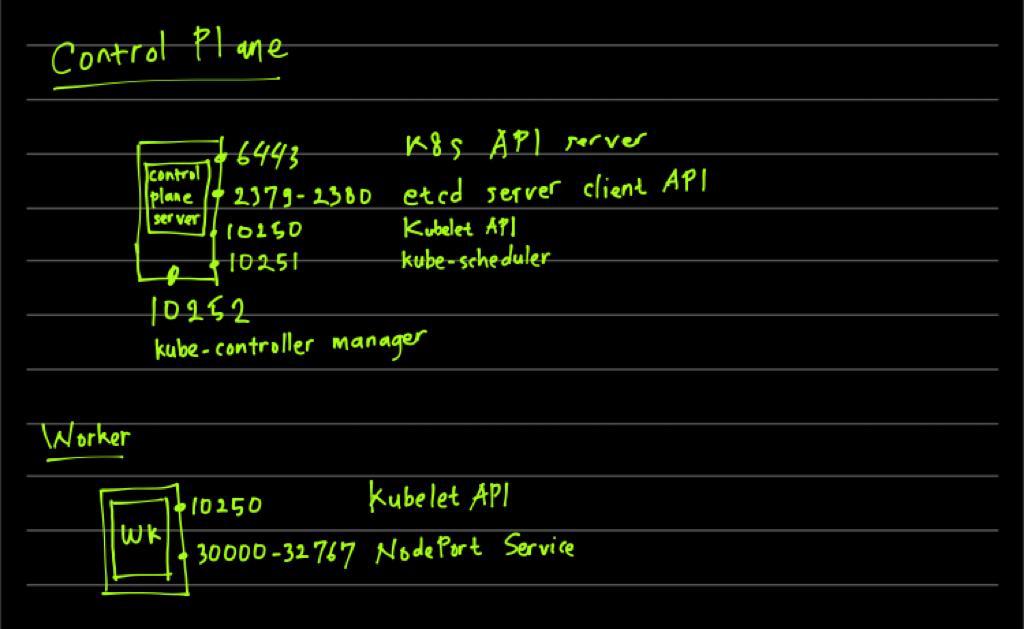 Control Plane
control
plane
server
6443 K8s API server
2379-2380 etcd server client API
10250 Kubelet API
10251 kube-scheduler
10252
kube-controller manager
Worker
WK
10250 Kubelet API
30000-32767 NodePort Service